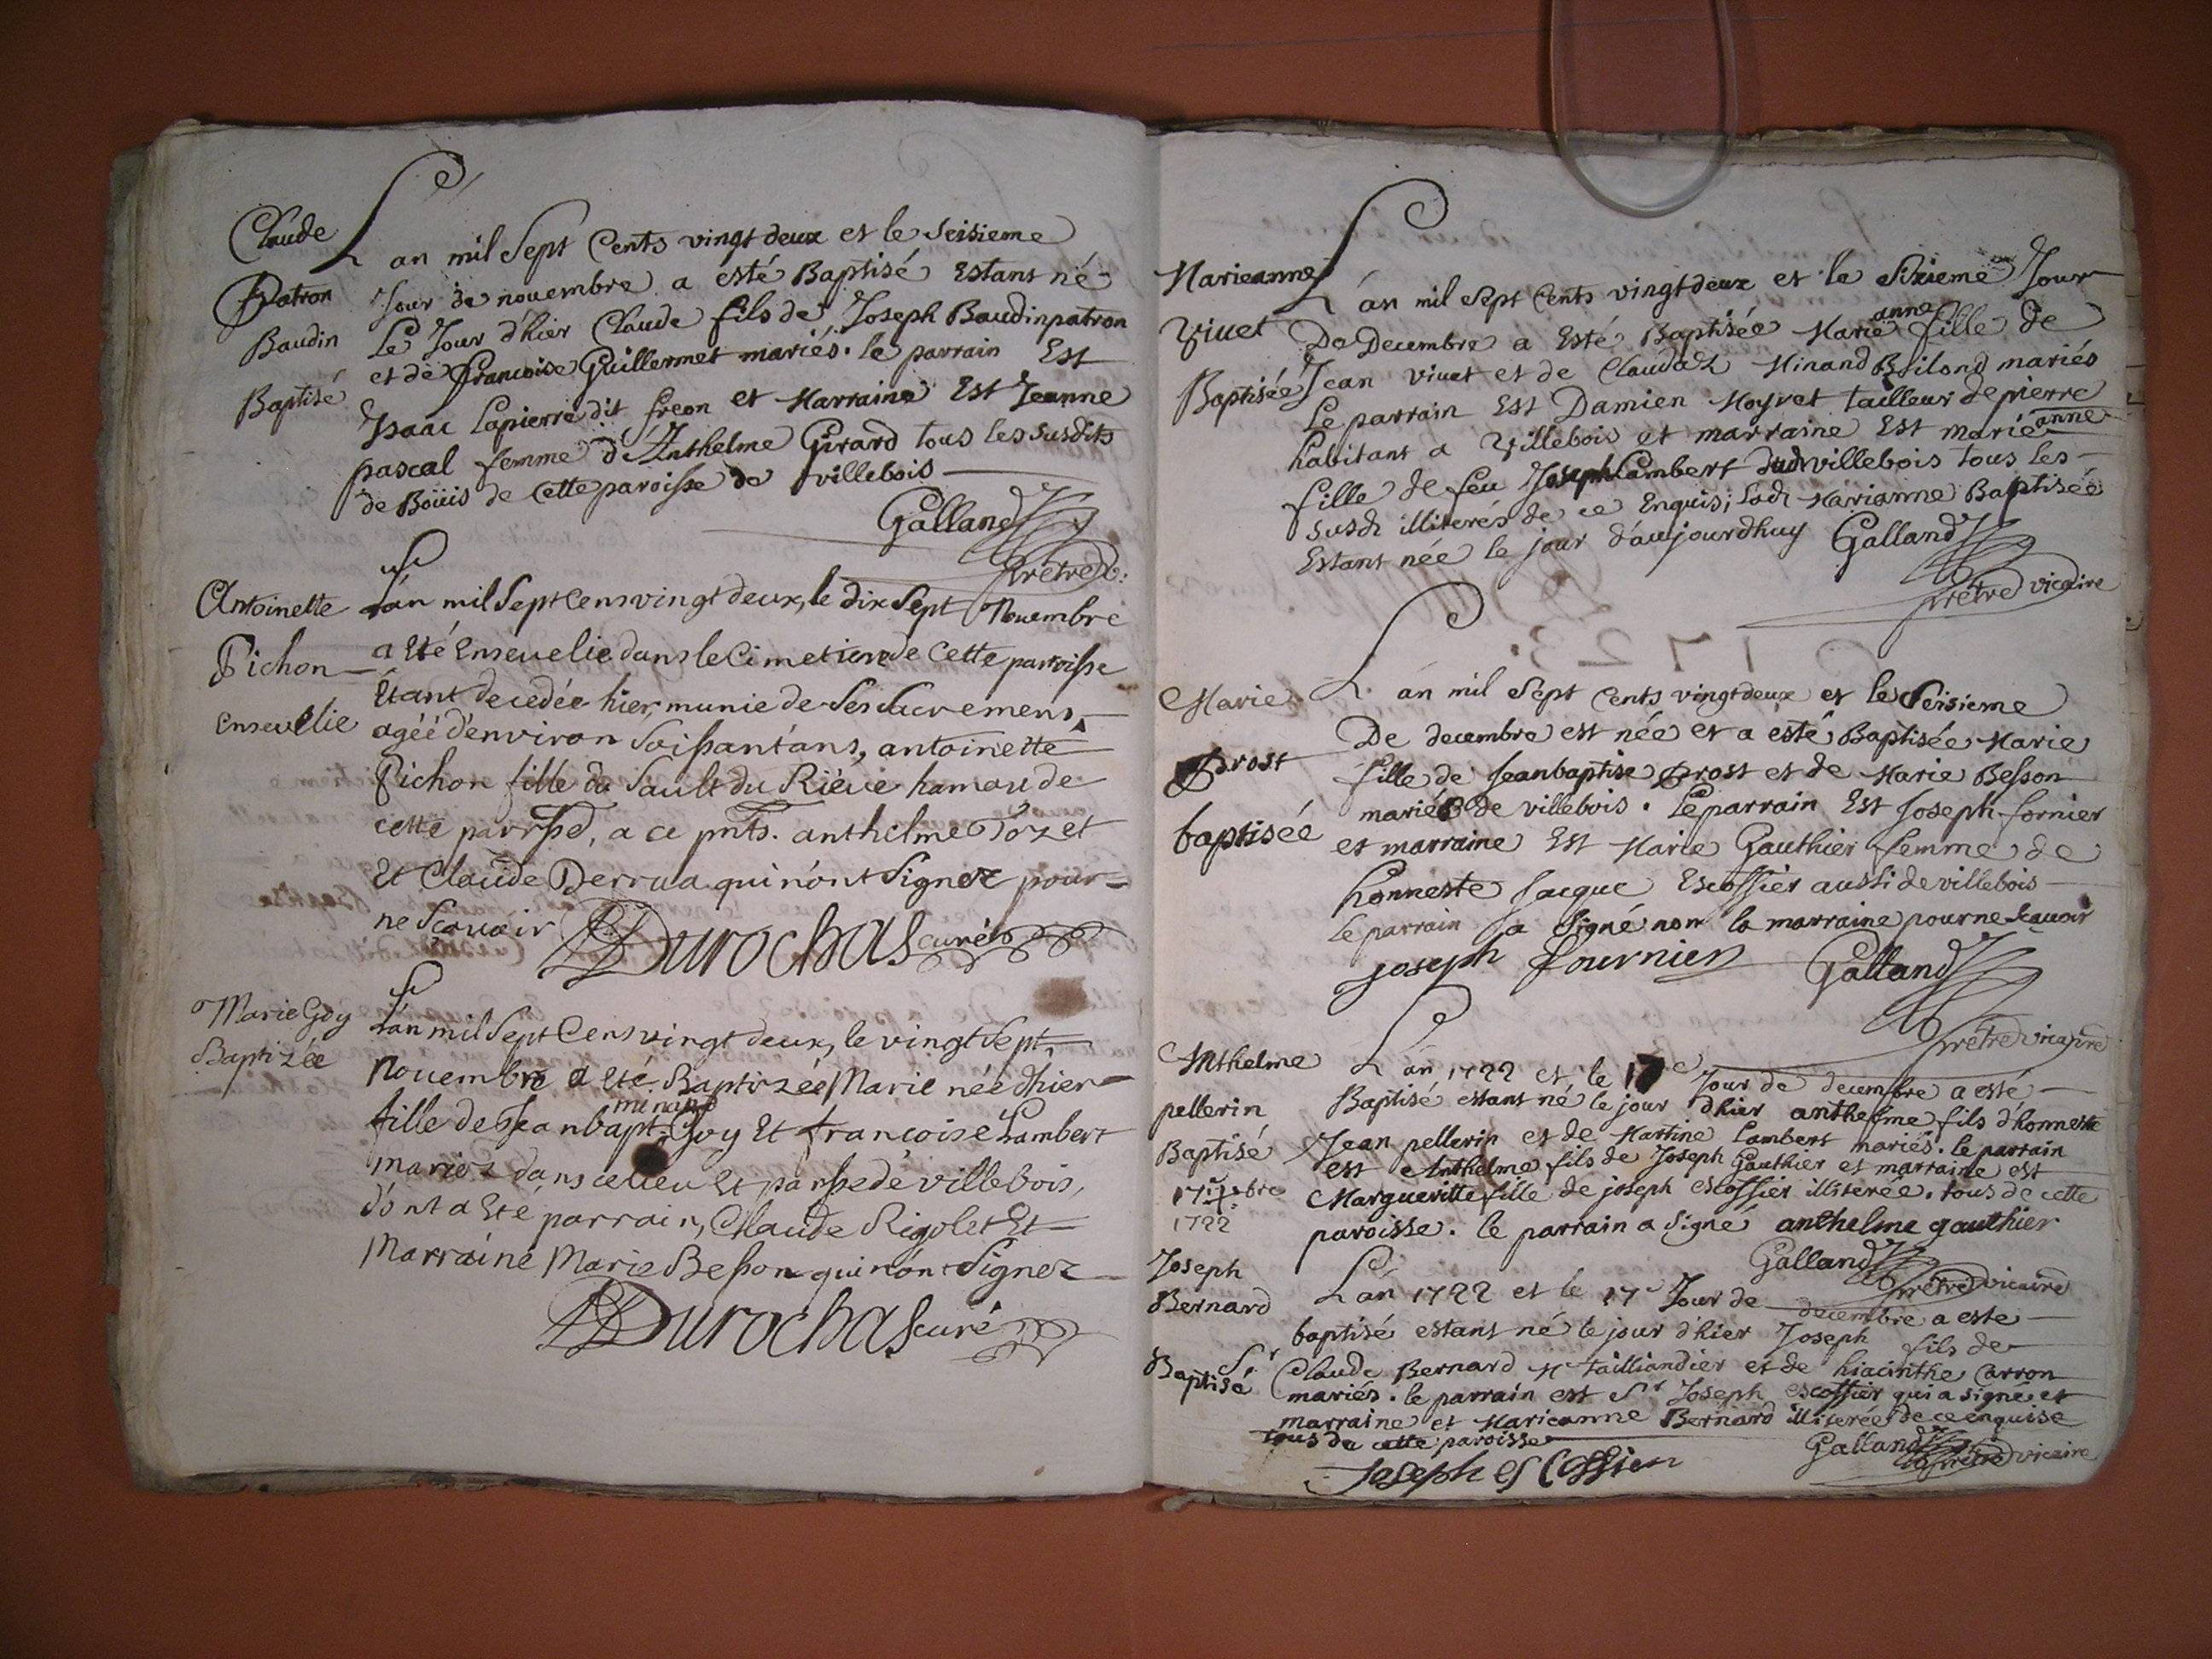 Claude
Patron
Baudin
Baptisé
L an mil Sept Cents vingt deux et le Seisieme
Jour de nouembre a esté Baptisé Estant né
Le Jour d'hier Claude fils de Joseph Baudin patron
et de francoise Guillermet mariés. le parrain Est
Isaac Lapierre dit freon et Marraine Est Jeanne
pascal femme d'Anthelme Girard tous les susdits
de Boüis de Cette paroisse de villebois
Galland
prêtre
Antoinette
Pichon
Enseuelie
L'an mil Sept Cens vingt deux, le dix Sept Nouembre
a Eté Enseuelie dans le Cimetiere de Cette parroisse
Etant decedée hier, munie de Ses Sacremens,
agéé d'environ Soissant'ans, antoinette
Pichon fille du Sault du Riéve hamau de
cette parrsse, a ce pnts. anthelme Tozet
Et Claude Derrua qui n'ont Signez pour
ne Scauoir
Durochas curé
Marie Goy
Baptizée
L'an mil Sept Cens vingt deux, le vingt Sept
Nouembre a Eté Baptizée Marie née d'hier
minand
fille de Jean bapt. Goy Et francoise Lambert
mariez dans ce lieu Et parrsse de villebois,
d'ont a Eté parrain, Claude Rigolet Et
Marraine Marie Besson qui n'ont Signez
Durochas curé
Marieanne
Viuet
Baptisée
L'an mil Sept Cents vingt deux et le Sixieme Jour
anne
De Decembre a Esté Baptisée Marie fille de
Jean viuet et de Claudaz Minand Bilond mariés
Le parrain Est Damien Moyret tailleur de pierre
anne
habitant a Villebois et marraine Est marie
fille de feu Joseph Lambert dud villebois tous les
susd illiterés de ce Enquis; lad Marianne Baptisée
Estant née le jour d'aujourdhuy Galland
prêtre vicaire
Marie
Prost
baptisée
L'an mil Sept Cents vingt deux et le Seisieme
De decembre est née et a esté Baptisée Marie
fille de Jean baptise Prost et de Marie Besson
mariés de villebois. Le parrain Est Joseph fornier
et marraine Est Marie Gauthier femme de
honneste Jacque Escoffier aussi de villebois
le parrain a Signé non la marraine pour ne scauoir
joseph fournier Galland
prêtre vicaire
Anthelme
pellerin
Baptisé
17 xbre
1722
L'an 1722 et le 17e Jour de decembre a esté
Baptisé estant né le jour d'hier anthelme fils d'honneste
Jean pellerin et de Martine Lambert mariés. le parrain
est Anthelme fils de Joseph Gauthier et marraine est
Margueritte fille de joseph escoffier illiterée. tous de cette
paroisse. le parrain a Signé anthelme gauthier
Galland
prêtre vicaire
Joseph
Bernard
Baptisé
L'an 1722 et le 17e Jour de decembre a este
baptisé estant né le jour d'hier Joseph fils de
Sr Claude Bernard Me tailliandier et de hiacinthe Carron
mariés. le parrain est Sr Joseph escoffier qui a signé et
marraine et Marieanne Bernard illiterée de ce enquise
tous de cette paroisse
Galland
prêtre vicaire
Joseph esCoffier